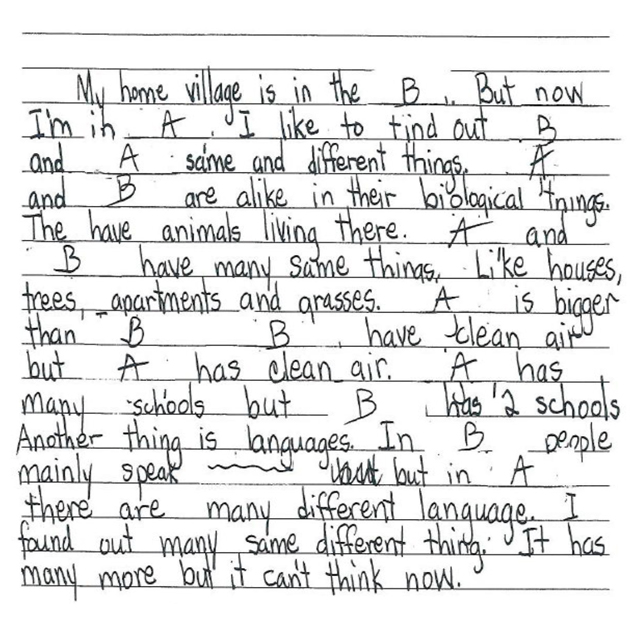 My home village is in the B . But now
I'm in A . I like to find out B
and A same and different things. A
and B are alike in their biological things.
The have animals living there. A and
B have many same things. Like houses,
trees, apartments and grasses. A is bigger
than B B , have clean air
but A has clean air. A has
many schools but B has 2 schools
Another thing is languages. In B people
mainly speak but in A
there are many different language. I
found out many same different thing. It has
many more but it can't think now.